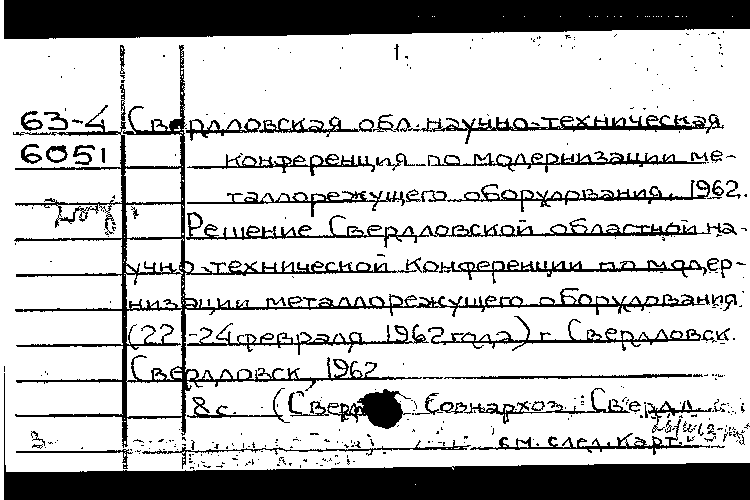 1.
63-4 Свердловская обл. научно-техническая
6051 конференция по модернизации ме-
таллорежущего оборудования. 1962.
Решение Свердловской областной на-
учно-технической конференции по модер-
низации металлорежущего оборудования.
(22-24 февраля 1962 года) г. Свердловск.
Свердловск, 1962
8с. (Сверд Совнархоз. Свердл.
см. след. карт.